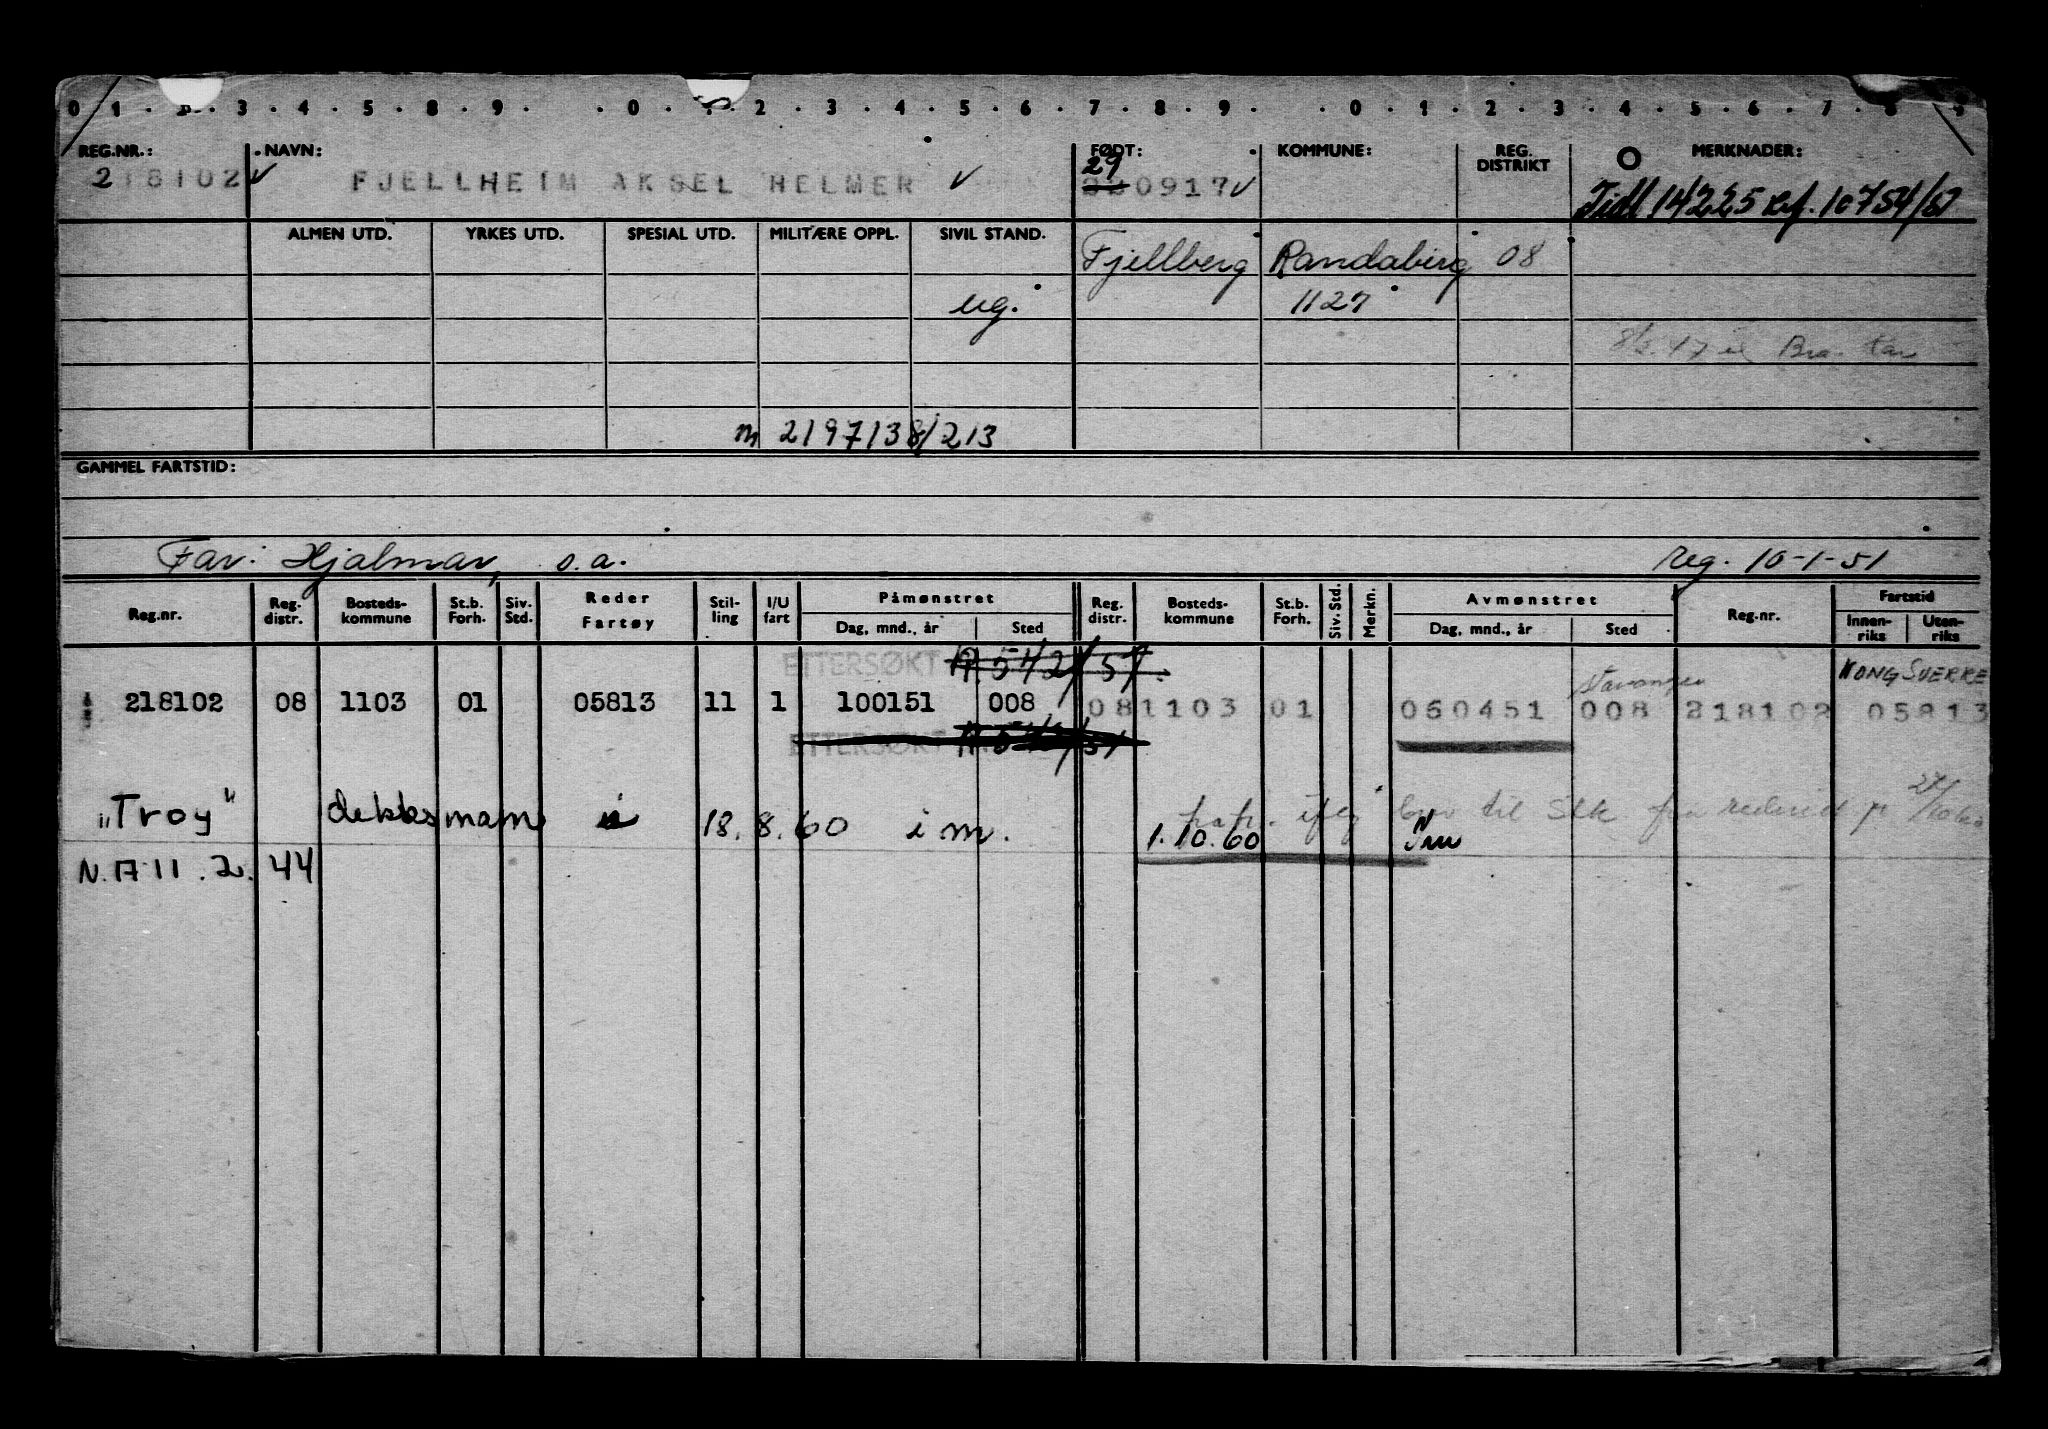 0 1 . 2 . 3 . 4 . 5 . 8 . 9 . . 0 . 1 . 2 . 3 . 4 . 5 . 6 . 7 . 8 . 9 . . 0 . 1 . 2 . 3 . 4 . 5 . 6 . 7 . 8 . 9
REG.NR.: NAVN: FØDT: KOMMUNE: REG. DISTRIKT MERKNADER:
218102 FJELLHEIM AKSEL HELMER 29 0917
Tidl 14225 Ref. 10754/
ALMEN UTD. YRKES UTD. SPESIAL UTD. MILITÆRE OPPL. SIVIL STAND.
Fjellberg Randaberg 08
ug. 1127
m 2197138/213
GAMMEL FARTSTID:
Far: Hjalmar, s.a. reg. 10-1-51
Reg.nr. Reg. distr. Bosteds-kommune St.b. Forh. Siv. Std. Reder Fartøy Stil-ling I/U fart Påmønstret Dag, mnd., år Sted Reg. distr. Bosteds-kommune St.b. Forh. Siv. Std. Merkn. Avmønstret Dag, mnd., år Sted Reg.nr. Fartstid Innen-riks Uten-riks
ETTERSØKT A 542/51.
Stavanger KONG SVERRE
218102 08 1103 01 05813 11 1 100151 008 08 1103 01 060451 008 218102 05813
ETTERSØKT
"Troy" dekksmann 18.8.60 i m. 1.10.60
N.A 11.2.44